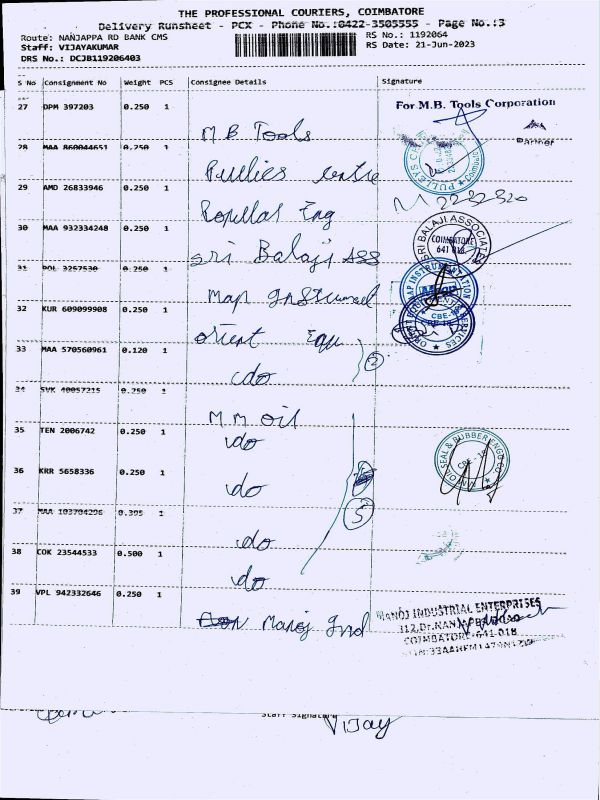 THE PROFESSIONAL COURIERS, COIMBATORE
Delivery Runsheet - PCX - Phone No.:0422-3505555 - Page No.:3
Route: NANJAPPA RD BANK CMS
RS No.: 1192064
Staff: VIJAYAKUMAR
RS Date: 21-Jun-2023
DRS No.: DCJB119206403
S No Consignment No Weight PCS Consignee Details Signature
27 DPM 397203 0.250 1
For M.B. Tools Corporation
Partner
M B Tools
28 MAA 860044651 0.250 1
Pullies centre
29 AMD 26833946 0.250 1
Eng
30 MAA 932334248 0.250 1
SRI BALAJI ASSOCIATES
COIMBATORE
641 018
Sri Balaji ASS
31 POL 3257530 0.250 1
MAP INSTRUMENTATION
Map Instrument
32 KUR 609099908 0.250 1
CBE-18
Orient Equ
33 MAA 570560961 0.120 1
2
do
34 SVK 40057215 0.250 1
M M Oil
35 TEN 2006742 0.250 1
do
OIL SEAL & RUBBER ENGG CO.
CBE-18
36 KRR 5658336 0.250 1
do
37 MAA 103704296 0.395 1
5
do
38 COK 23544533 0.500 1
do
39 VPL 942332646 0.250 1
Manoj Ind
MANOJ INDUSTRIAL ENTERPRISES
312, Dr. NANJAPPA ROAD
COIMBATORE-641 018
Staff Signature
Vijay